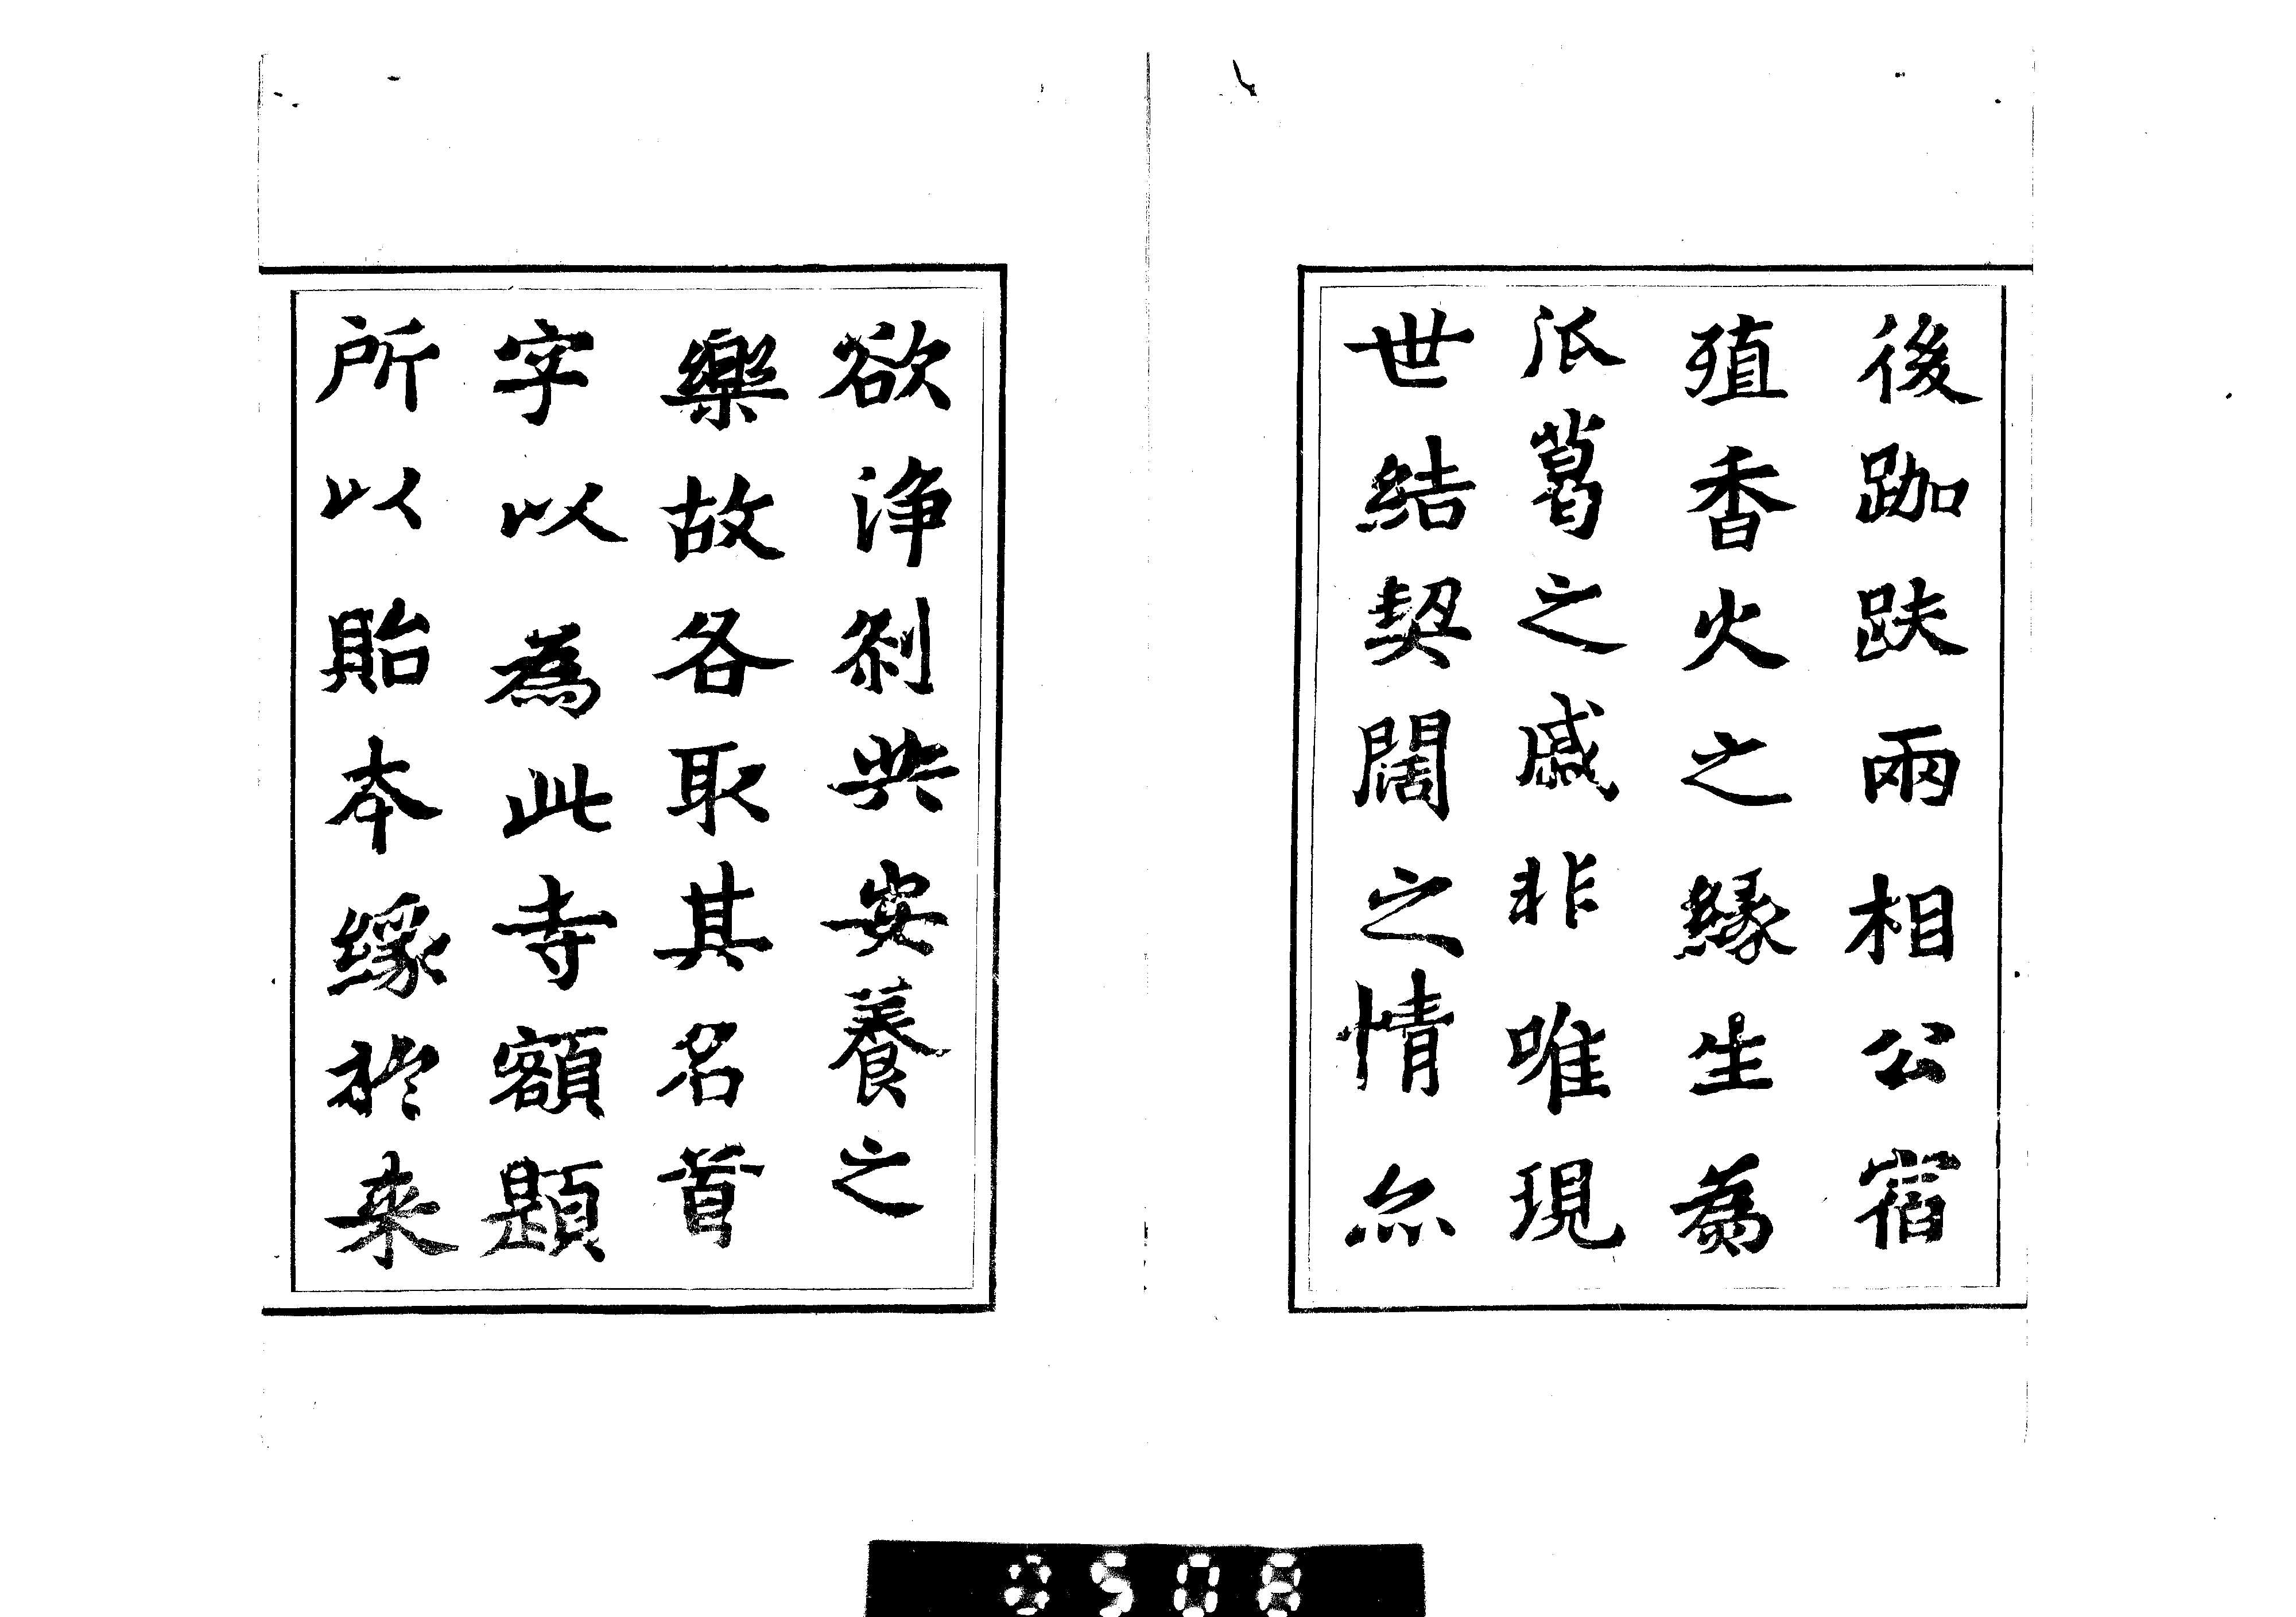 後跏趺兩相公宿
殖香火之緣生為
瓜葛之戚非唯現
世結契闊之情尒
欲淨刹共安養之
樂故各取其名首
字以為此寺額題
所以貽本緣於来